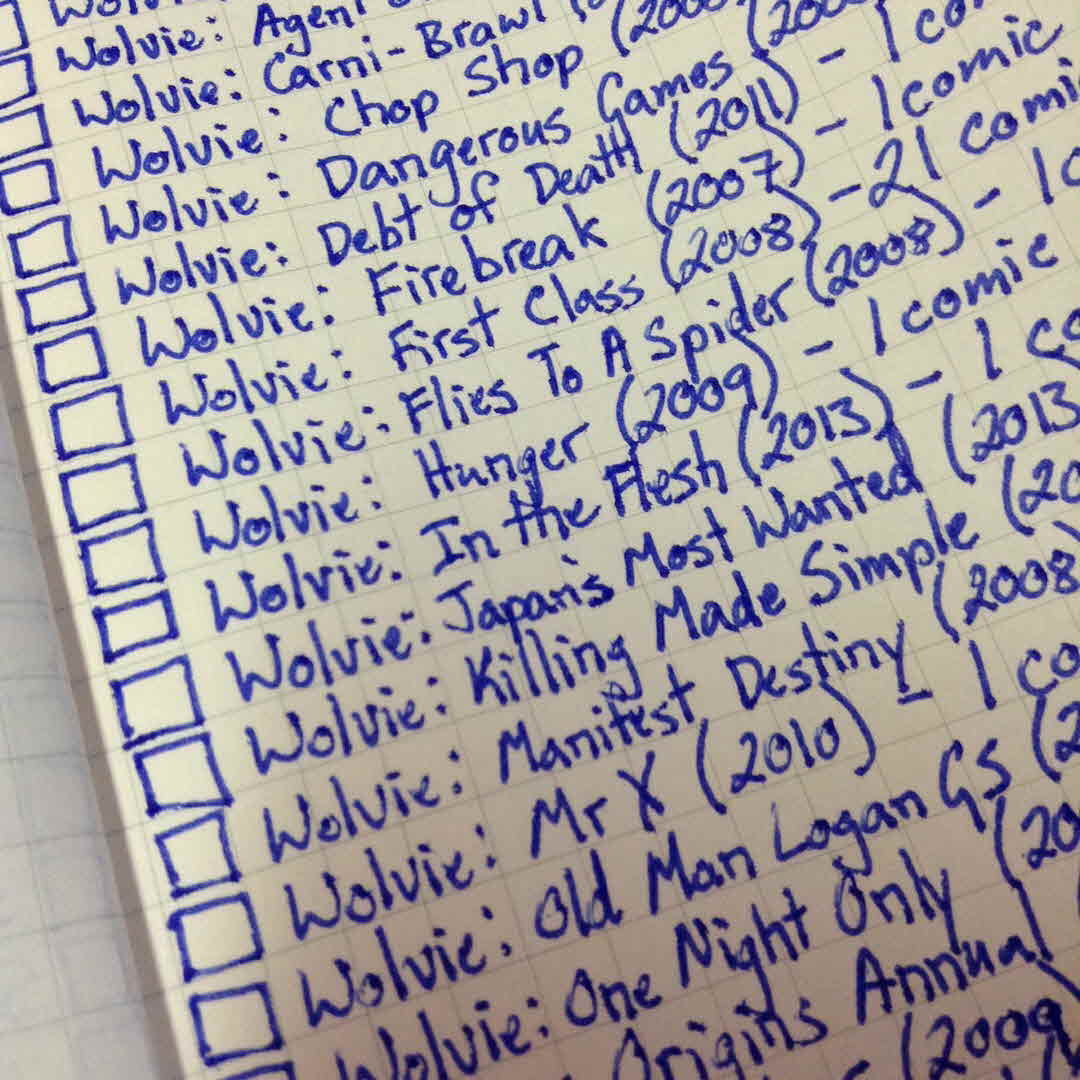 Wolvie: Agent
Wolvie: Carni-Brawl
Wolvie: Chop Shop (200
Wolvie: Dangerous Games (200
Wolvie: Debt of Death (2011) - 1 co
Wolvie: Firebreak (2007) - 1 comic
Wolvie: First Class (2008) - 21 comic
Wolvie: Flies To A Spider (2008) - 1 c
Wolvie: Hunger (2009) - 1 comic
Wolvie: In the Flesh (2013) - 1 co
Wolvie: Japan's Most Wanted (2013
Wolvie: Killing Made Simple (20
Wolvie: Manifest Destiny (2008
Wolvie: Mr X (2010) - 1 co
Wolvie: Old Man Logan GS (2
Wolvie: One Night Only (20
Wolvie: Origins Annual (
(2009